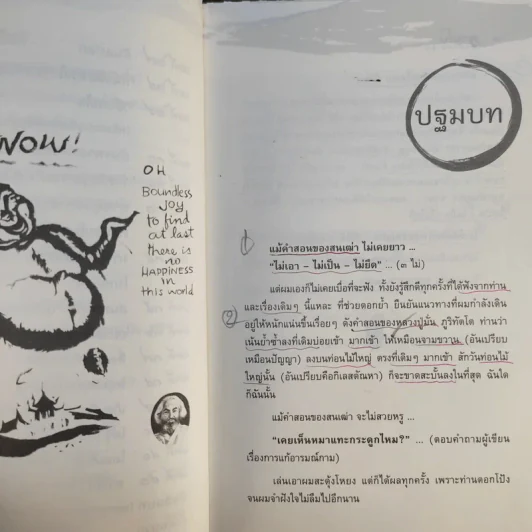 WOW!
OH
Boundless
JOY
to find
at last
there is
no
HAPPINESS
in
this world
ปฐมบท
๑
แม้คำสอนของสนเฒ่า ไม่เคยยาว ...
"ไม่เอา - ไม่เป็น - ไม่ยึด" ... (๓ ไม่)
แต่ผมเองก็ไม่เคยเบื่อที่จะฟัง ทั้งยังรู้สึกดีทุกครั้งที่ได้ฟังจากท่าน
และเรื่องเดิมๆ นี้แหละ ที่ช่วยตอกย้ำ ยืนยันแนวทางที่ผมกำลังเดิน
อยู่ให้หนักแน่นขึ้นเรื่อยๆ ดังคำสอนของหลวงปู่มั่น ภูริทัตโต ท่านว่า
๒
เน้นย้ำซ้ำลงที่เดิมบ่อยเข้า มากเข้า ให้เหมือนจามขวาน (อันเปรียบ
เหมือนปัญญา) ลงบนท่อนไม้ใหญ่ ตรงที่เดิมๆ มากเข้า สักวันท่อนไม้
ใหญ่นั้น (อันเปรียบคือกิเลสตัณหา) ก็จะขาดสะบั้นลงในที่สุด ฉันใด
ก็ฉันนั้น
แม้คำสอนของสนเฒ่า จะไม่สวยหรู ...
"เคยเห็นหมาแทะกระดูกไหม?" ... (ตอบคำถามผู้เขียน
เรื่องการแก้อารมณ์กาม)
เล่นเอาผมสะดุ้งโหยง แต่ก็ได้ผลทุกครั้ง เพราะท่านตอกโป้ง
จนผมจำฝังใจไม่ลืมไปอีกนาน